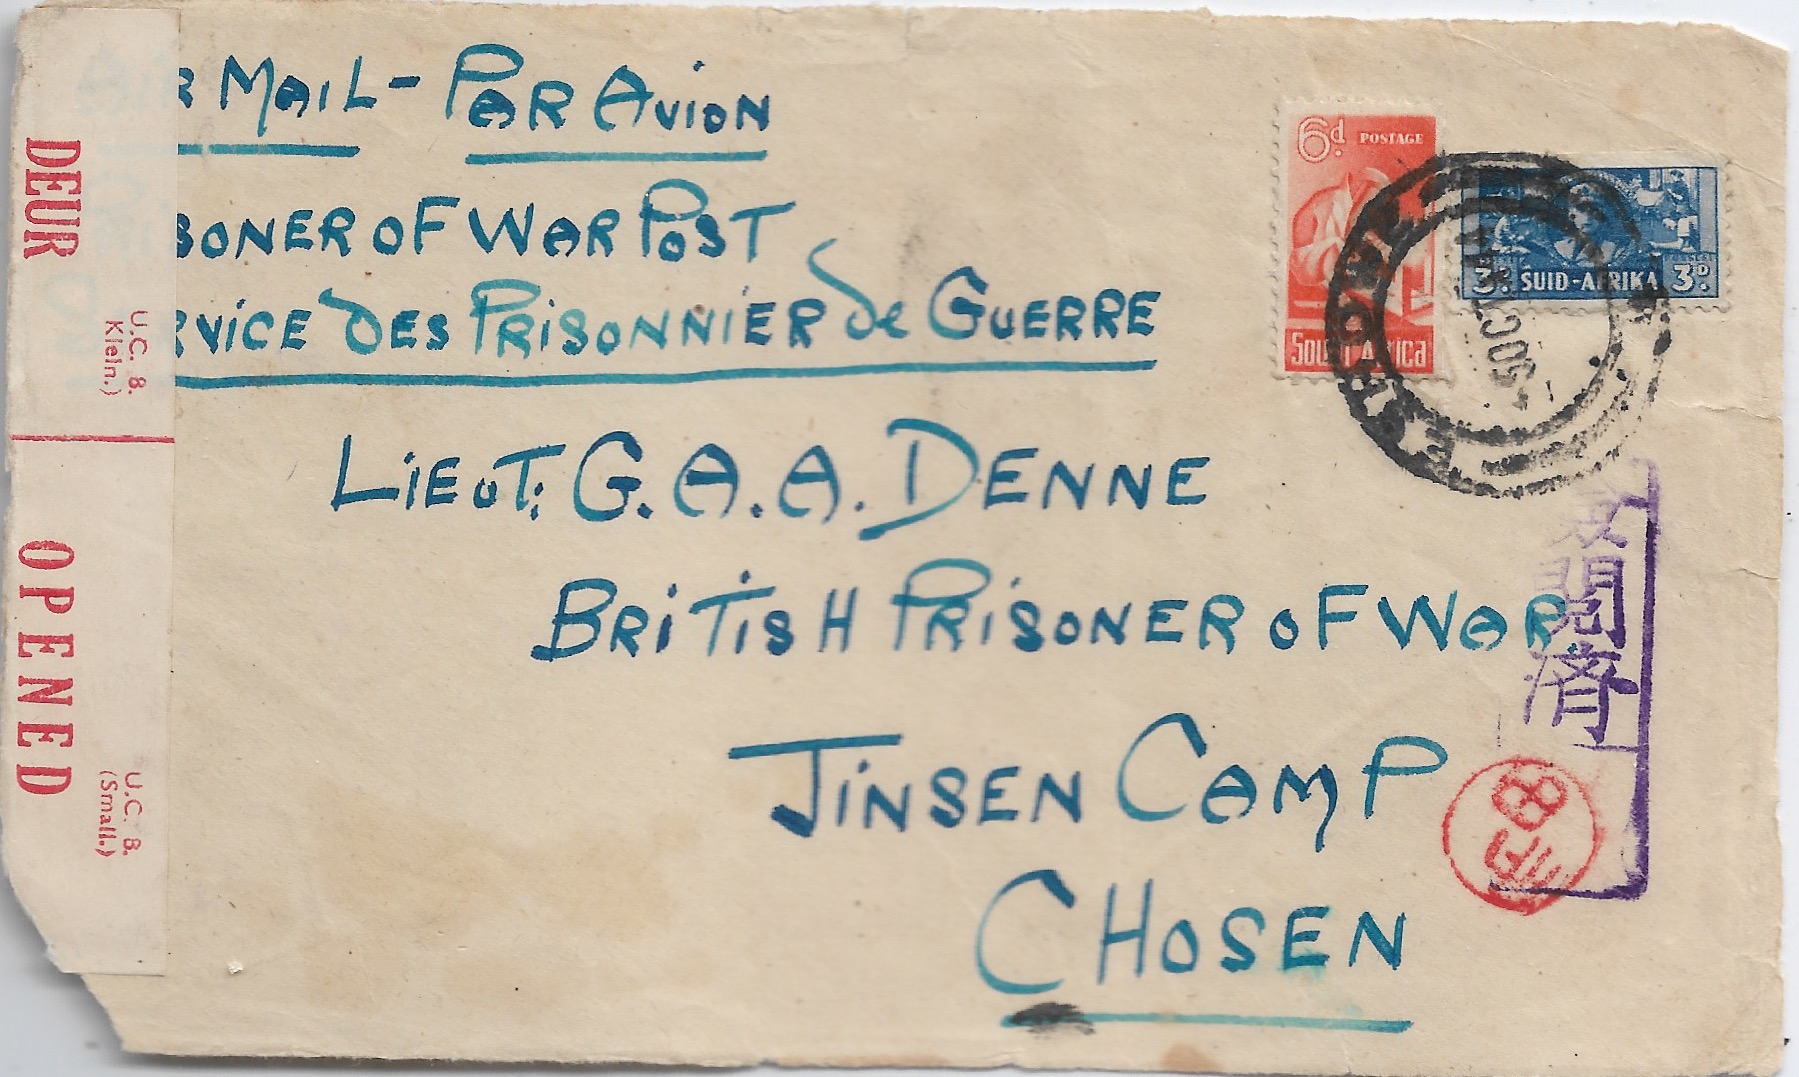 R MAIL - PAR AVION
SONER OF WAR POST
RVICE DES PRISONNIER de GUERRE
LIEUT. G. A. A. DENNE
BRITISH PRISONER OF WAR.
JINSEN CAMP
CHOSEN
DEUR
OPENED
U.C. 8.
Klein.)
U.C. 8.
(Small.)
6d. POSTAGE
South Africa
3D. SUID-AFRIKA 3D.
閲済